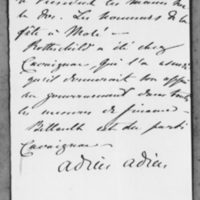 le dos. Les honneurs de la
fête à Molé —
Rothschild a été chez
Cavaignac, qui l'a assuré
qu'il donnerait son appui
au gouvernement dans toutes
les mesures de finance —
Billault est du parti
Cavaignac —
adieu adieu